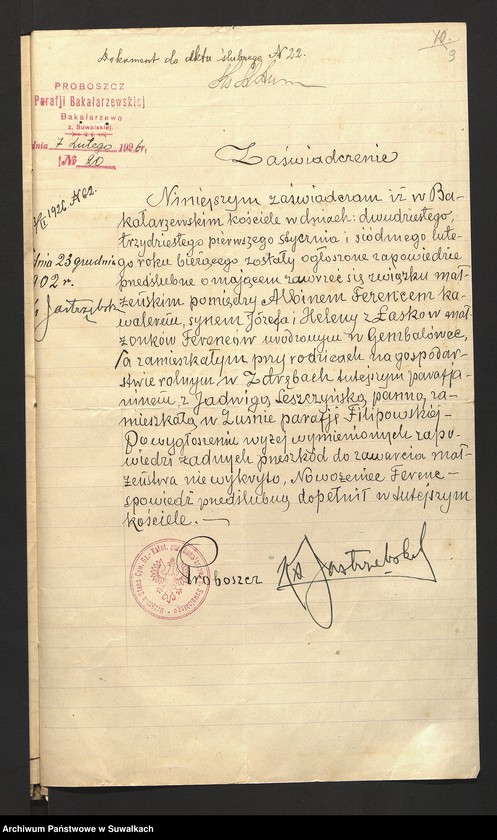 Dokument do aktu ślubnego N 22.
10.
9
PROBOSZCZ
Parafji Bakałarzewskiej
Bakałarzewo
z. Suwalskiej.
dnia 7 Lutego 1926 r.
№ 20
Zaświadczenie
1926. N 62.
dnia 23 grudnia
902 r.
Jastrzębski
Niniejszym zaświadczam iż w Ba-
kałarzewskim kościele w dniach: dwudziestego,
trzydziestego pierwszego stycznia i siódmego lute-
go roku bieżącego zostały ogłoszone zapowiedzie
przedślubne o mającem zawrzeć się związku mał-
żeńskim pomiędzy Albinem Ferencem ka-
walerem, synem Józefa i Heleny z Łasków mał-
żonków Ferenców urodzonym w Gembalówce,
a zamieszkałym przy rodzicach na gospodar-
stwie rolnym w Zdrębach tutejszym parafja-
ninem, z Jadwigą Leszczyńską panną, za-
mieszkałą w Zusnie parafję Filipowskiej.-
Po wygłoszeniu wyżej wymienionych zapo-
wiedzi żadnych przeszkód do zawarcia mał-
żeństwa nie wykryto, Nowożeniec Ferenc-
spowiedź przedślubną dopełnił w tutejszym
kościele. —
Proboszcz Ks Jastrzębski
Archiwum Państwowe w Suwałkach